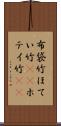 布袋竹ほて
い竹ホ
テイ竹